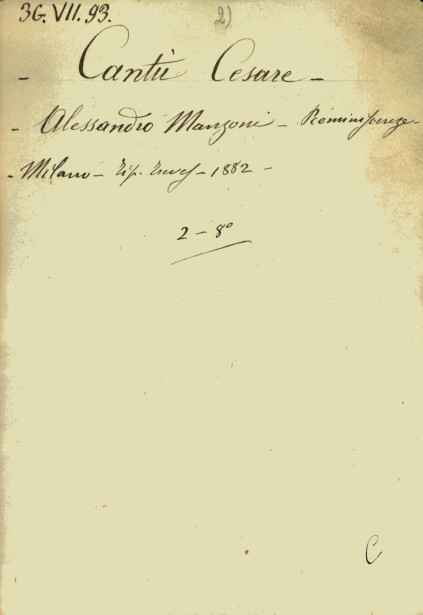 3G. VII. 93.
2)
- Cantù Cesare -
- Alessandro Manzoni - Reminiscenze -
- Milano - Tip. Treves - 1882 -
2 - 8°
C